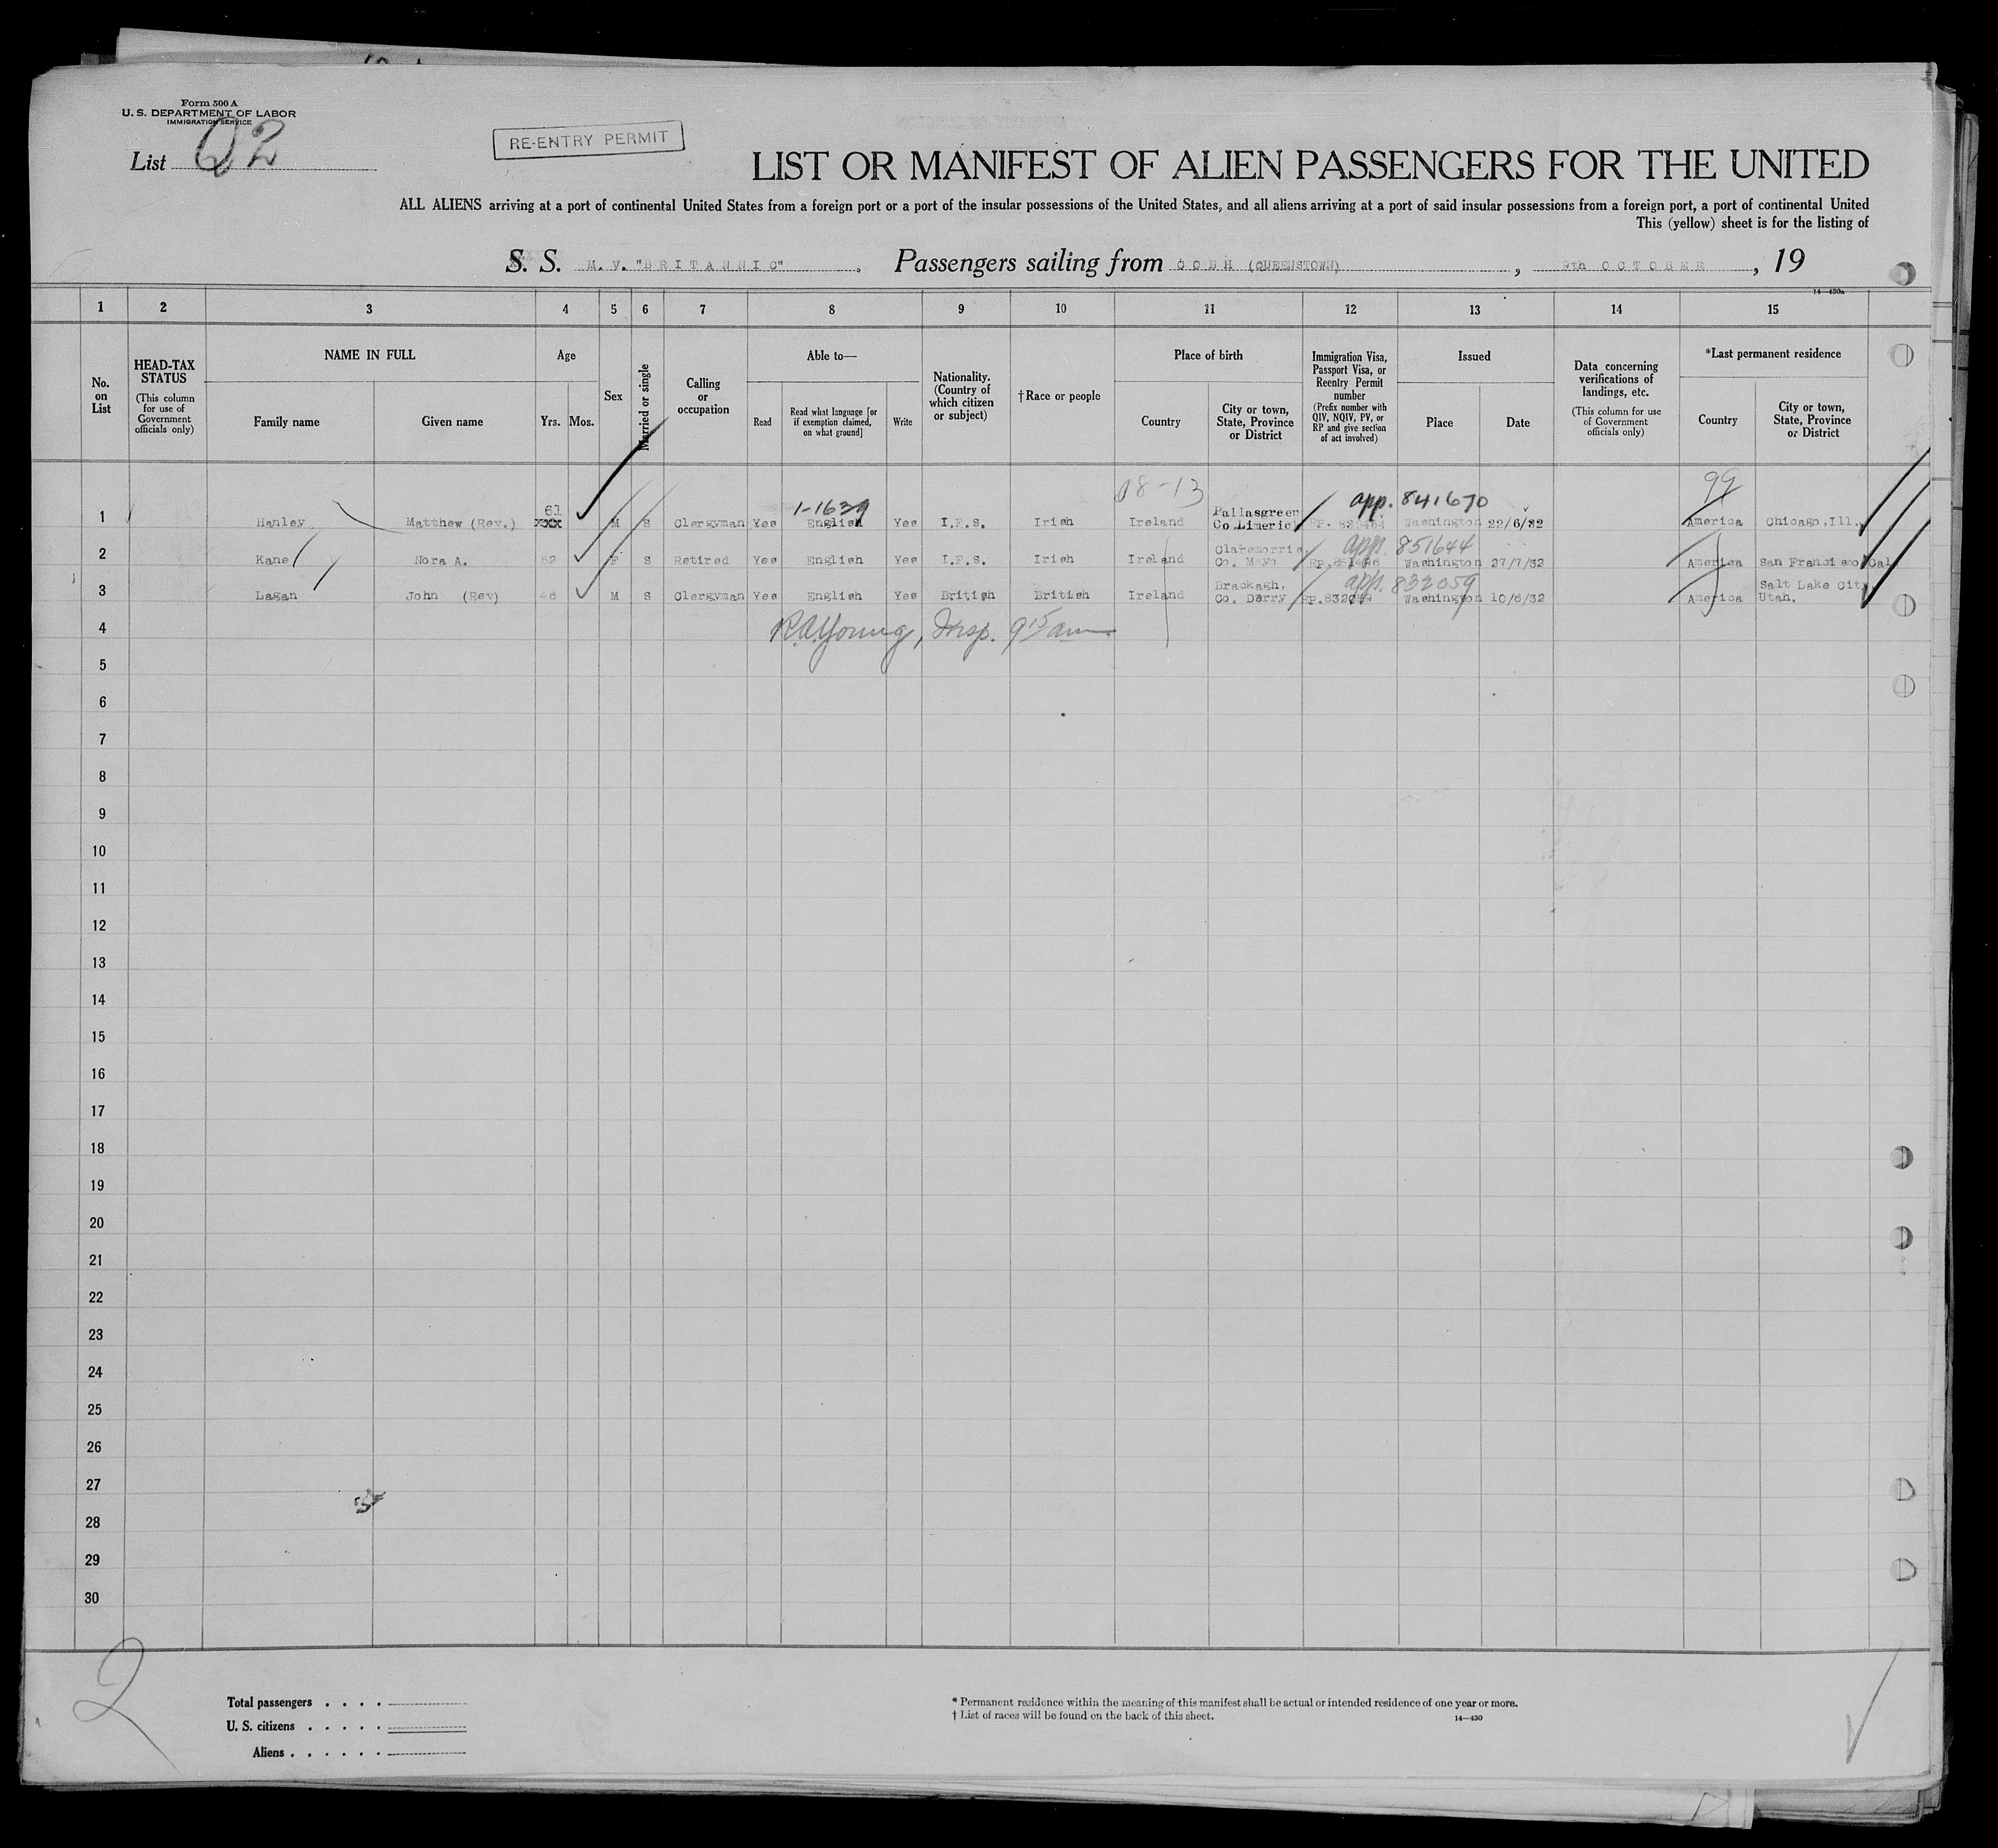 Form 500 A
U. S. DEPARTMENT OF LABOR
IMMIGRATION SERVICE
List 22
RE-ENTRY PERMIT
LIST OR MANIFEST OF ALIEN PASSENGERS FOR THE UNITED
ALL ALIENS arriving at a port of continental United States from a foreign port or a port of the insular possessions of the United States, and all aliens arriving at a port of said insular possessions from a foreign port, a port of continental United
This (yellow) sheet is for the listing of
S. S. M. V. "BRITANNIC" . Passengers sailing from COBH (QUEENSTOWN) , 9th OCTOBER , 19
14—430a
1 2 3 4 5 6 7 8 9 10 11 12 13 14 15
No. on List
HEAD-TAX STATUS
(This column for use of Government officials only)
NAME IN FULL
Family name
Given name
Age
Yrs. Mos.
Sex
Married or single
Calling or occupation
Able to—
Read
Read what language [or if exemption claimed, on what ground]
Write
Nationality. (Country of which citizen or subject)
† Race or people
Place of birth
Country
City or town, State, Province or District
Immigration Visa, Passport Visa, or Reentry Permit number
(Prefix number with QIV, NQIV, PV, or RP and give section of act involved)
Issued
Place
Date
Data concerning verifications of landings, etc.
(This column for use of Government officials only)
*Last permanent residence
Country
City or town, State, Province or District
08-13 99
61 1-1639 Pallasgreen app. 841670
1 Hanley Matthew (Rev.) xxx M S Clergyman Yes English Yes I.F.S. Irish Ireland Co.Limerick RP. Washington 22/6/32 America Chicago,Ill.
Claremorris, app. 851644
2 Kane Nora A. 52 F S Retired Yes English Yes I.F.S. Irish Ireland Co. Mayo Washington 27/7/32 America San Francisco Cal
Brackagh, app. 832059 Salt Lake City
3 Lagan John (Rev) 46 M S Clergyman Yes English Yes British British Ireland Co. Derry RP.832059 Washington 10/6/32 America Utah.
4 R.A. Young, Insp. 9 15 am
5
6
7
8
9
10
11
12
13
14
15
16
17
18
19
20
21
22
23
24
25
26
27
28
29
30
2
Total passengers . . . .
U. S. citizens . . . . .
Aliens . . . . . .
* Permanent residence within the meaning of this manifest shall be actual or intended residence of one year or more.
† List of races will be found on the back of this sheet.
14—430